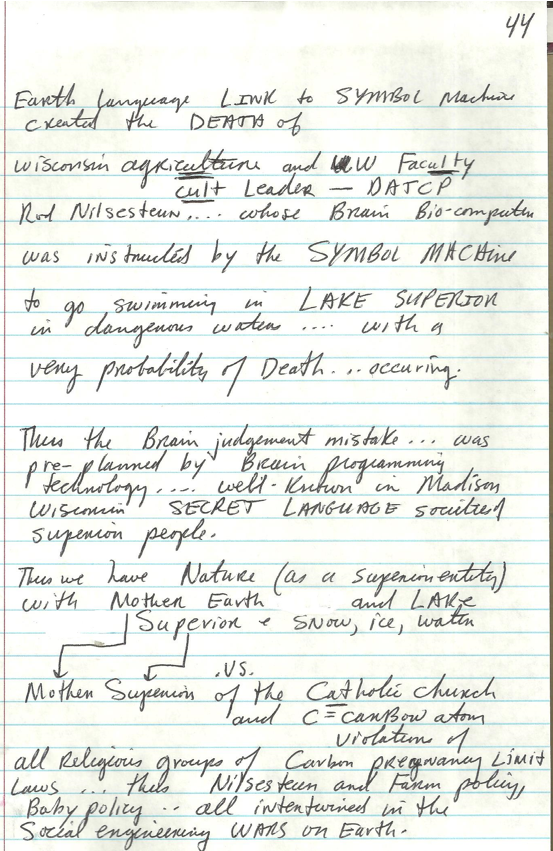 44
Earth language LINK to SYMBOL machine
created the DEATH of
wisconsin agriculture and UW Faculty
cult Leader — DATCP
Rod Nilsesteun.... whose Brain Bio-computer
was instructed by the SYMBOL MACHine
to go swimming in LAKE SUPERIOR
in dangerous waters .... with a
very probability of Death... occuring.
Thus the Brain judgement mistake... was
pre-planned by Brain programming
technology.... well-known in Madison
Wisconsin SECRET LANGUAGE societies of
superior people.
Thus we have Nature (as a superior entity)
with Mother Earth and LAKe
Superior + SNOW, ice, water
.VS.
Mother Superior of the Catholic church
and C=carbon atom
violations of
all Religious groups of Carbon pregnancy Limit
Laws ... thus Nilsesteun and Farm policy,
Baby policy .. all intertwined in the
Social engineering WARS on Earth.